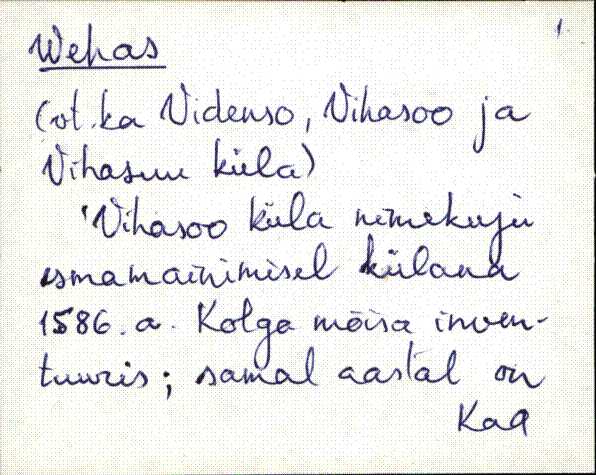 1.
Wehas
(vt. ka Videnso, Vihasoo ja
Vihasuu küla)
'Vihasoo küla nimekuju
esmamainimisel külana
1586. a. Kolga mõisa inven-
tuuris; samal aastal on
Ka A